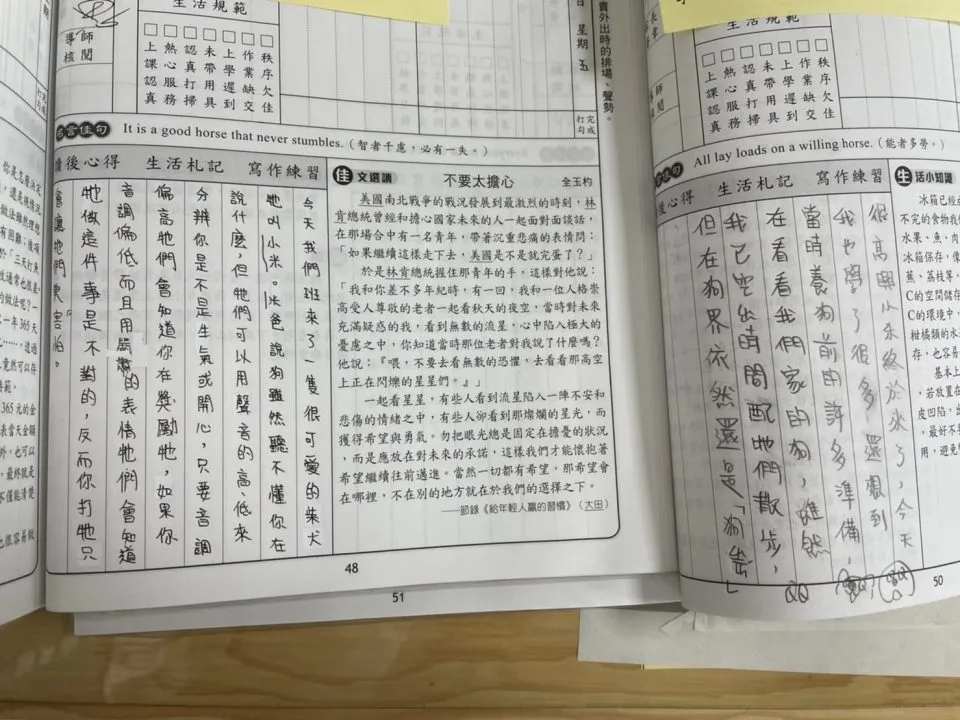 生活規範
導師核閱
上課認真
熱心服務
認真打掃
未帶用具
上學遲到
作業缺交
秩序欠佳
完成打勾
日 星期五
實外出時的排場、聲勢。
It is a good horse that never stumbles.（智者千慮，必有一失。）
讀後心得 生活札記 寫作練習
今天我們班來了一隻很可愛的柴犬
她叫小米。米爸說狗雖然聽不懂你在
說什麼，但牠們可以用聲音的高、低來
分辨你是不是生氣或開心，只要音調
偏高牠們會知道你在獎勵牠，如果你
音調偏低而且用嚴肅的表情牠們會知道
牠做這件事是不對的，反而你打牠只
會讓牠們更害怕。
佳文選讀 不要太擔心 全玉杓
美國南北戰爭的戰況發展到最激烈的時刻，林
肯總統曾經和擔心國家未來的人一起面對面談話，
在那場合中有一名青年，帶著沉重悲痛的表情問：
「如果繼續這樣走下去，美國是不是就完蛋了？」
於是林肯總統握住那青年的手，這樣對他說：
「我和你差不多年紀時，有一回，我和一位人格崇
高受人尊敬的老者一起看秋天的夜空，當時對未來
充滿疑惑的我，看到無數的流星，心中陷入極大的
憂慮之中，你知道當時那位老者對我說了什麼嗎？
他說：『喂，不要去看無數的恐懼，去看看那高空
上正在閃爍的星星們。』」
一起看星星，有些人看到流星陷入一陣不安和
悲傷的情緒之中，有些人卻看到那燦爛的星光，而
獲得希望與勇氣。勿把眼光總是固定在擔憂的狀況
，而是應放在對未來的承諾，這樣我們才能懷抱著
希望繼續往前邁進。當然一切都有希望，那希望會
在哪裡，不在別的地方就在於我們的選擇之下。
——節錄《給年輕人贏的習慣》（大田）
48
51
生活規範
導師核閱
上課認真
熱心服務
認真打掃
未帶用具
上學遲到
作業缺交
秩序欠佳
完成打勾
All lay loads on a willing horse.（能者多勞。）
後心得 生活札記 寫作練習
很高興小米終於來了，今天
我也學了很多，還想到
當時養狗前的許多準備，
在看看我們家的狗，雖然
我已空出時間配牠們散步，
但在狗界依然還是「狗
生活小知識
冰箱已經成
不完的食物我們
水果、魚、肉
冰箱保存，像
蕉、荔枝等，
C的空間儲存
C的環境中，
柑橘類的水
存，也容易
基本上
，若放置在
皮凹陷，出
，最好不要
用，避免
50